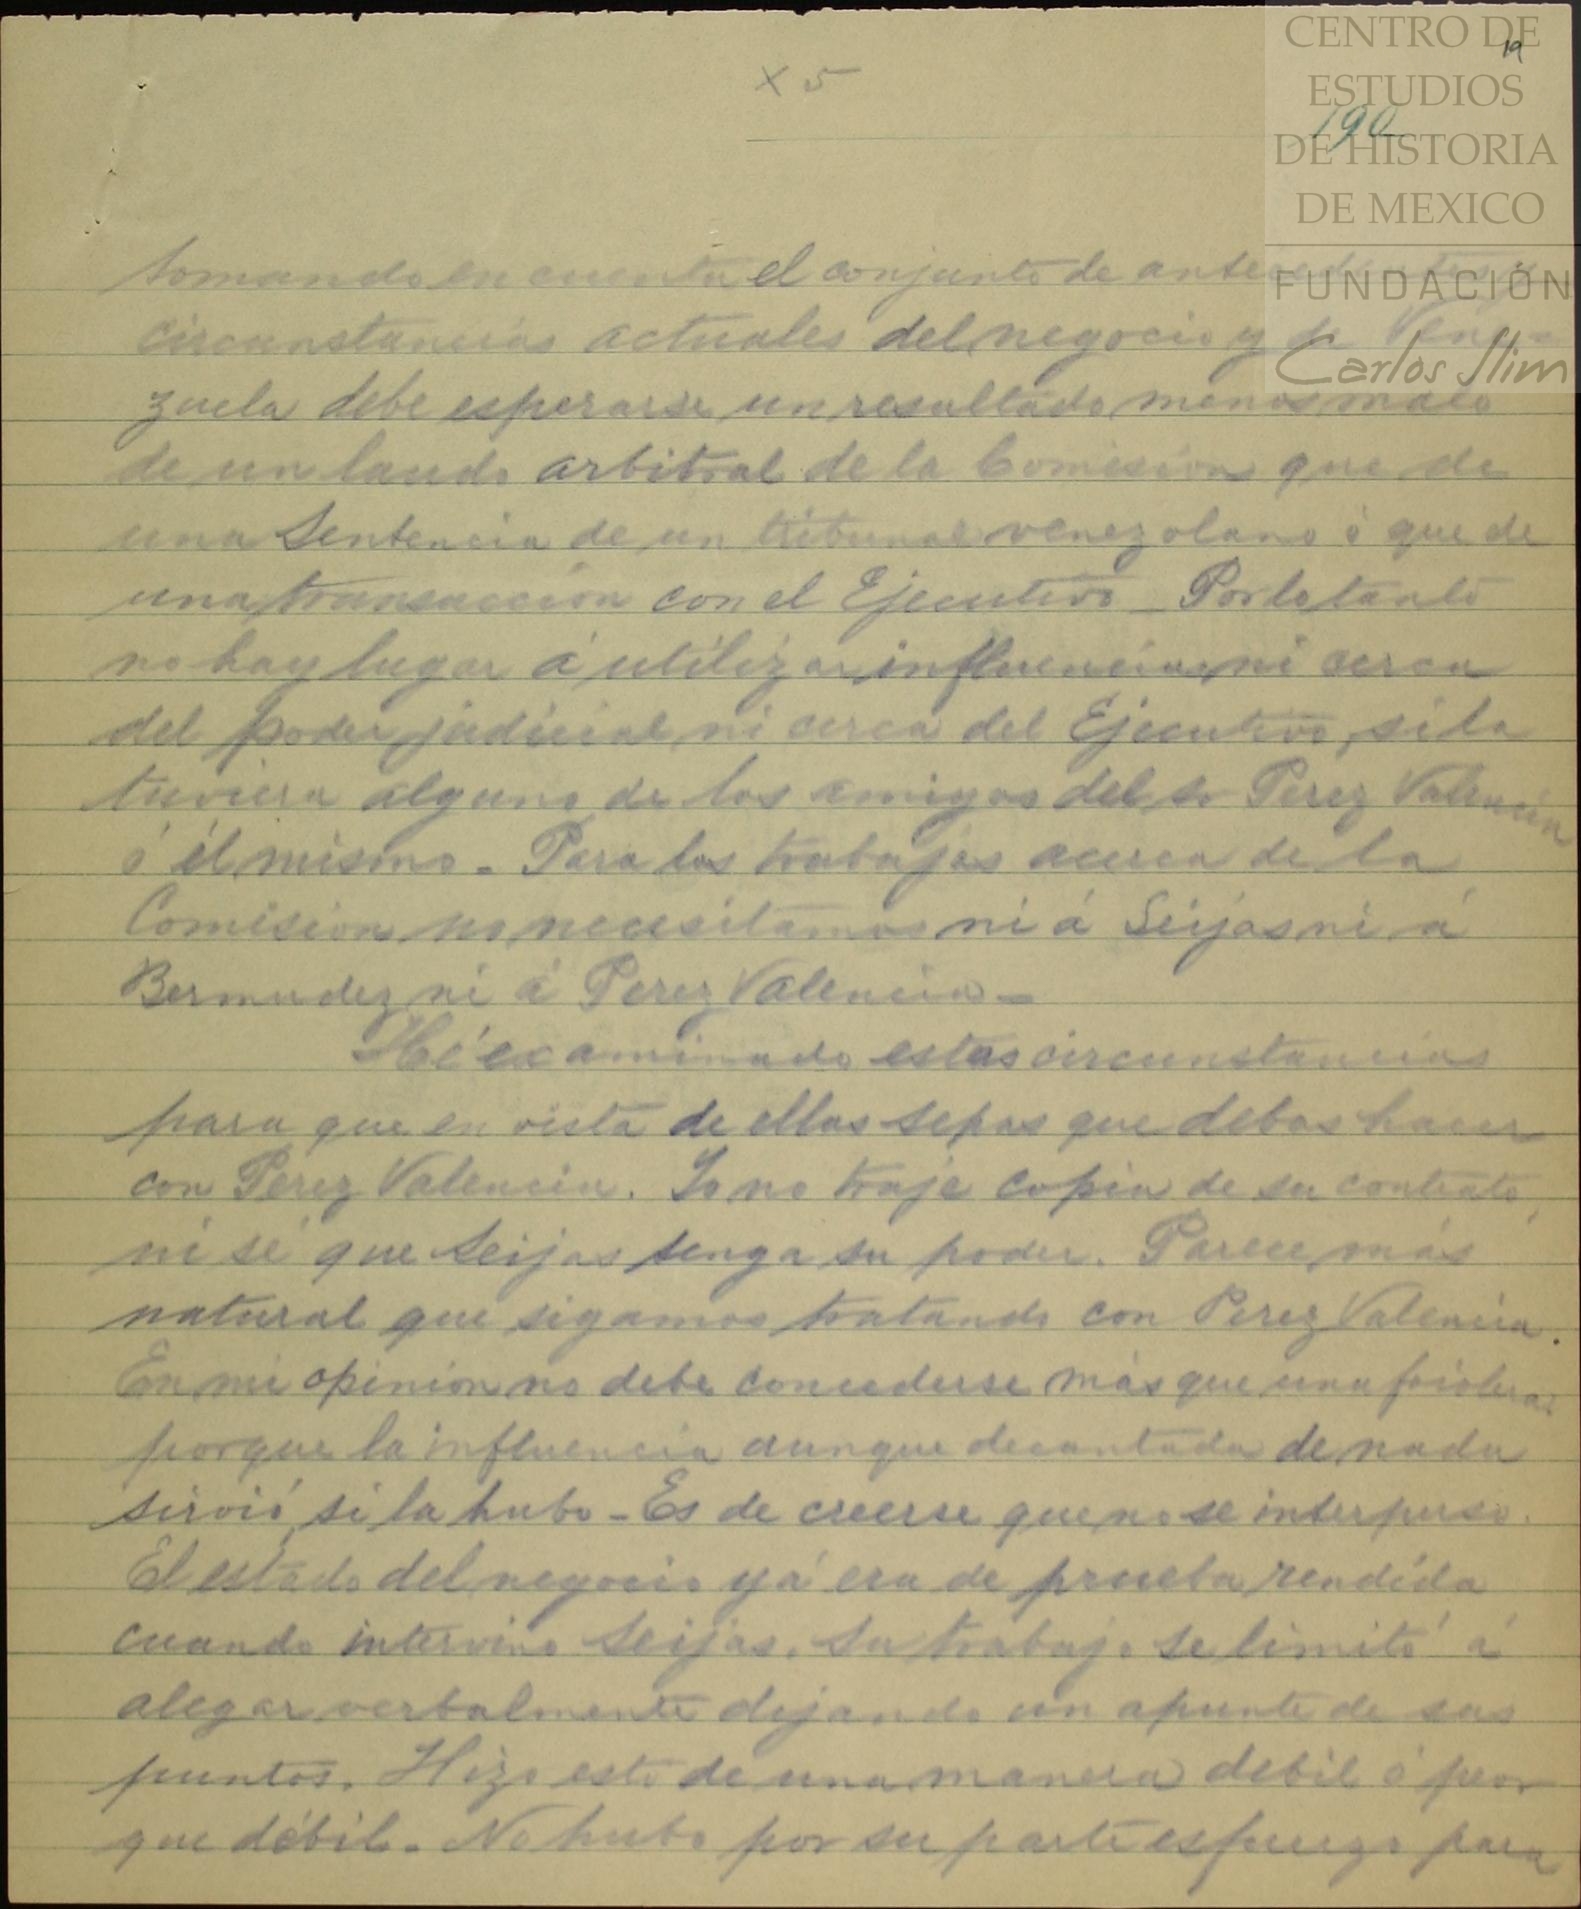 CENTRO DE
ESTUDIOS
DE HISTORIA
DE MEXICO
FUNDACIÓN
Carlos Slim
19
x 5
190
tomando en cuenta el conjunto de antecedentes y
circunstancias actuales del negocio y de Vene-
zuela debe esperarse un resultado menos malo
de un laudo arbitral de la Comision que de
una Sentencia de un tribunal venezolano ó que de
una transaccion con el Ejecutivo _ Por lo tanto
no hay lugar á utilizar influencias ni cerca
del poder judicial ni cerca del Ejecutivo, si la
tuviera alguno de los amigos del Sr Perez Valencia
ó él mismo - Para los trabajos acerca de la
Comision no necesitamos ni á Seijas ni á
Bermudez ni á Perez Valencia -
Hé examinado estas circunstancias
para que en vista de ellas sepas que debas hacer
con Perez Valencia. Yo no traje copia de su contrato,
ni sé que Seijas tenga su poder. Parece más
natural que sigamos tratando con Perez Valencia.
En mi opinion no debe concederse más que una friolera
porque la influencia aunque decantada de nada
sirvió, si la hubo - Es de creerse que no se interpuso.
El estado del negocio yá era de prueba rendida
cuando intervino Seijas. Su trabajo se limitó á
alegar verbalmente dejando un apunte de sus
puntos. Hizo esto de una manera debil ó peor
que débil. No hubo por su parte esfuerzo para